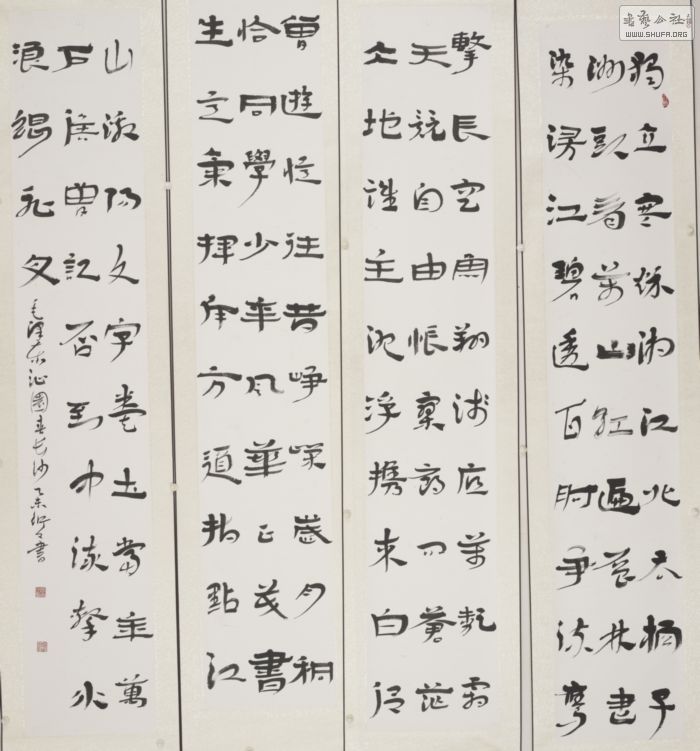 书艺公社
WWW.SHUFA.ORG
獨立寒秋湘江北去橘子
洲頭看萬山紅遍層林盡
染漫江碧透百舸爭流鷹
擊長空魚翔淺底萬類霜
天競自由悵寥廓問蒼茫
大地誰主沉浮攜來百侶
曾遊憶往昔崢嶸歲月稠
恰同學少年風華正茂書
生意氣揮斥方遒指點江
山激揚文字糞土當年萬
戶侯曾記否到中流擊水
浪遏飛舟
毛澤東沁園春長沙乙未書